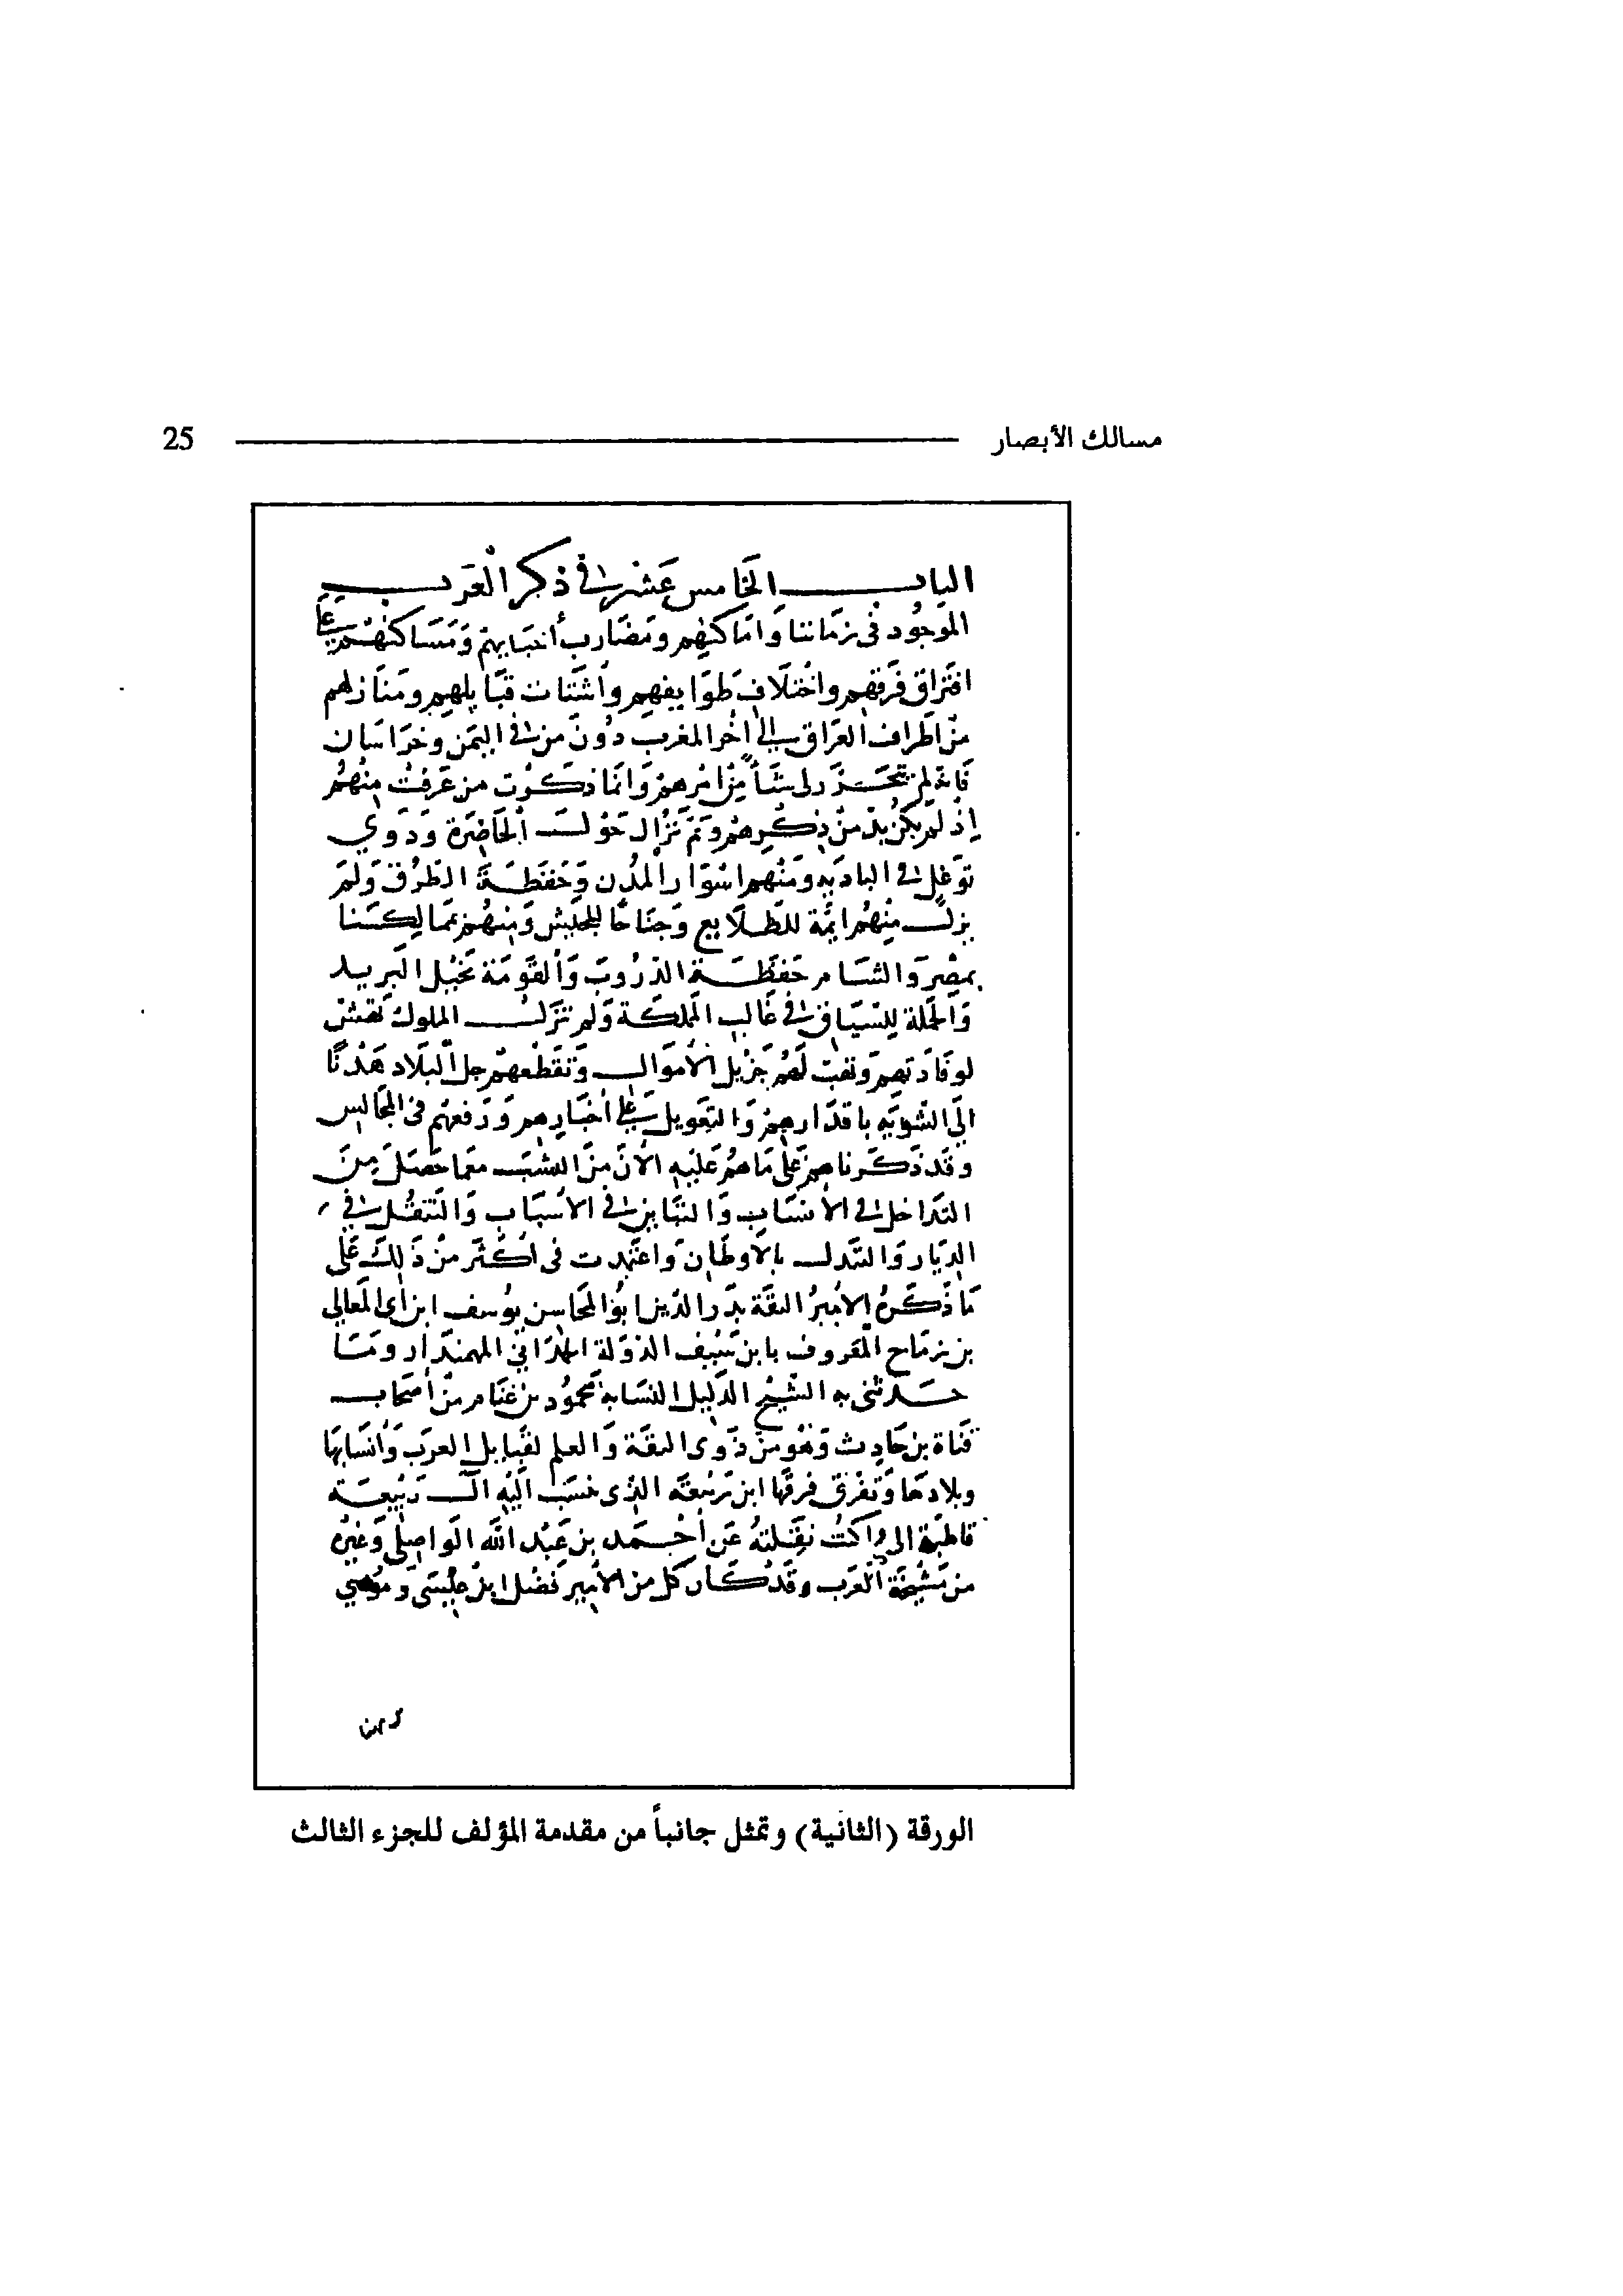 مسالك الأبصار 25
الباب الخامس عشر في ذكر العرب
الموجود في زماننا وأماكنهم ومضارب أحيابهم ومساكنهم على
افتراق فرقهم واختلاف طوايفهم وأشتات قبايلهم ومنازلهم
من أطراف العراق إلى آخر المغرب دون من في اليمن وخراسان
فانه لم يتحرر لي شأ من امرهم وانما ذكرت من عرفت منهم
إذ لم يكن بد من ذكرهم وثم نزال حول الحاضرة وذوي
توغل في الباديه ومنهم اسوار المدن وحفظة الطرق ولم
يزل منهم ايمة للطلايع وجناحا للجيش ومنهم بممالكنا
بمصر والشام حفظة الدروب والقومة بخيل البريد
والحملة للسياق في غالب المملكة ولم تزل الملوك تهش
لوفادتهم وتهب لهم جزيل الأموال وتقطعهم جل البلاد هذا
الى التنويه باقدارهم والتعويل على أخبارهم ورفعهم في المجالس
وقد ذكرناهم على ما هم عليه الآن من النسب مما حصل من
التداخل في الأنساب والتباين في الأسباب والتنقل في
الديار والتبدل بالأوطان واعتمدت في اكثر من ذلك على
ما ذكره الأمير الثقة بدر الدين ابو المحاسن يوسف ابن أبي المعالي
بن زماح المعروف بابن سيف الدولة الحمداني المهمندار وما
حدثني به الشيخ الدليل النسابة محمود بن غنام من أصحاب
قناة بن حارث وهو من ذوي الثقة والعلم بقبايل العرب وأنسابها
وبلادها وتفرق فرقها ابن ربيعة الذي نسب اليه آل ربيعة
قاطبة الى ما كنت نقلته عن أحمد بن عبد الله الواصلي وغيره
من مشيخة العرب وقد كان كل من الأمير فضل ابن عيسى وموسى
الورقة (الثانية) وتمثل جانباً من مقدمة المؤلف للجزء الثالث